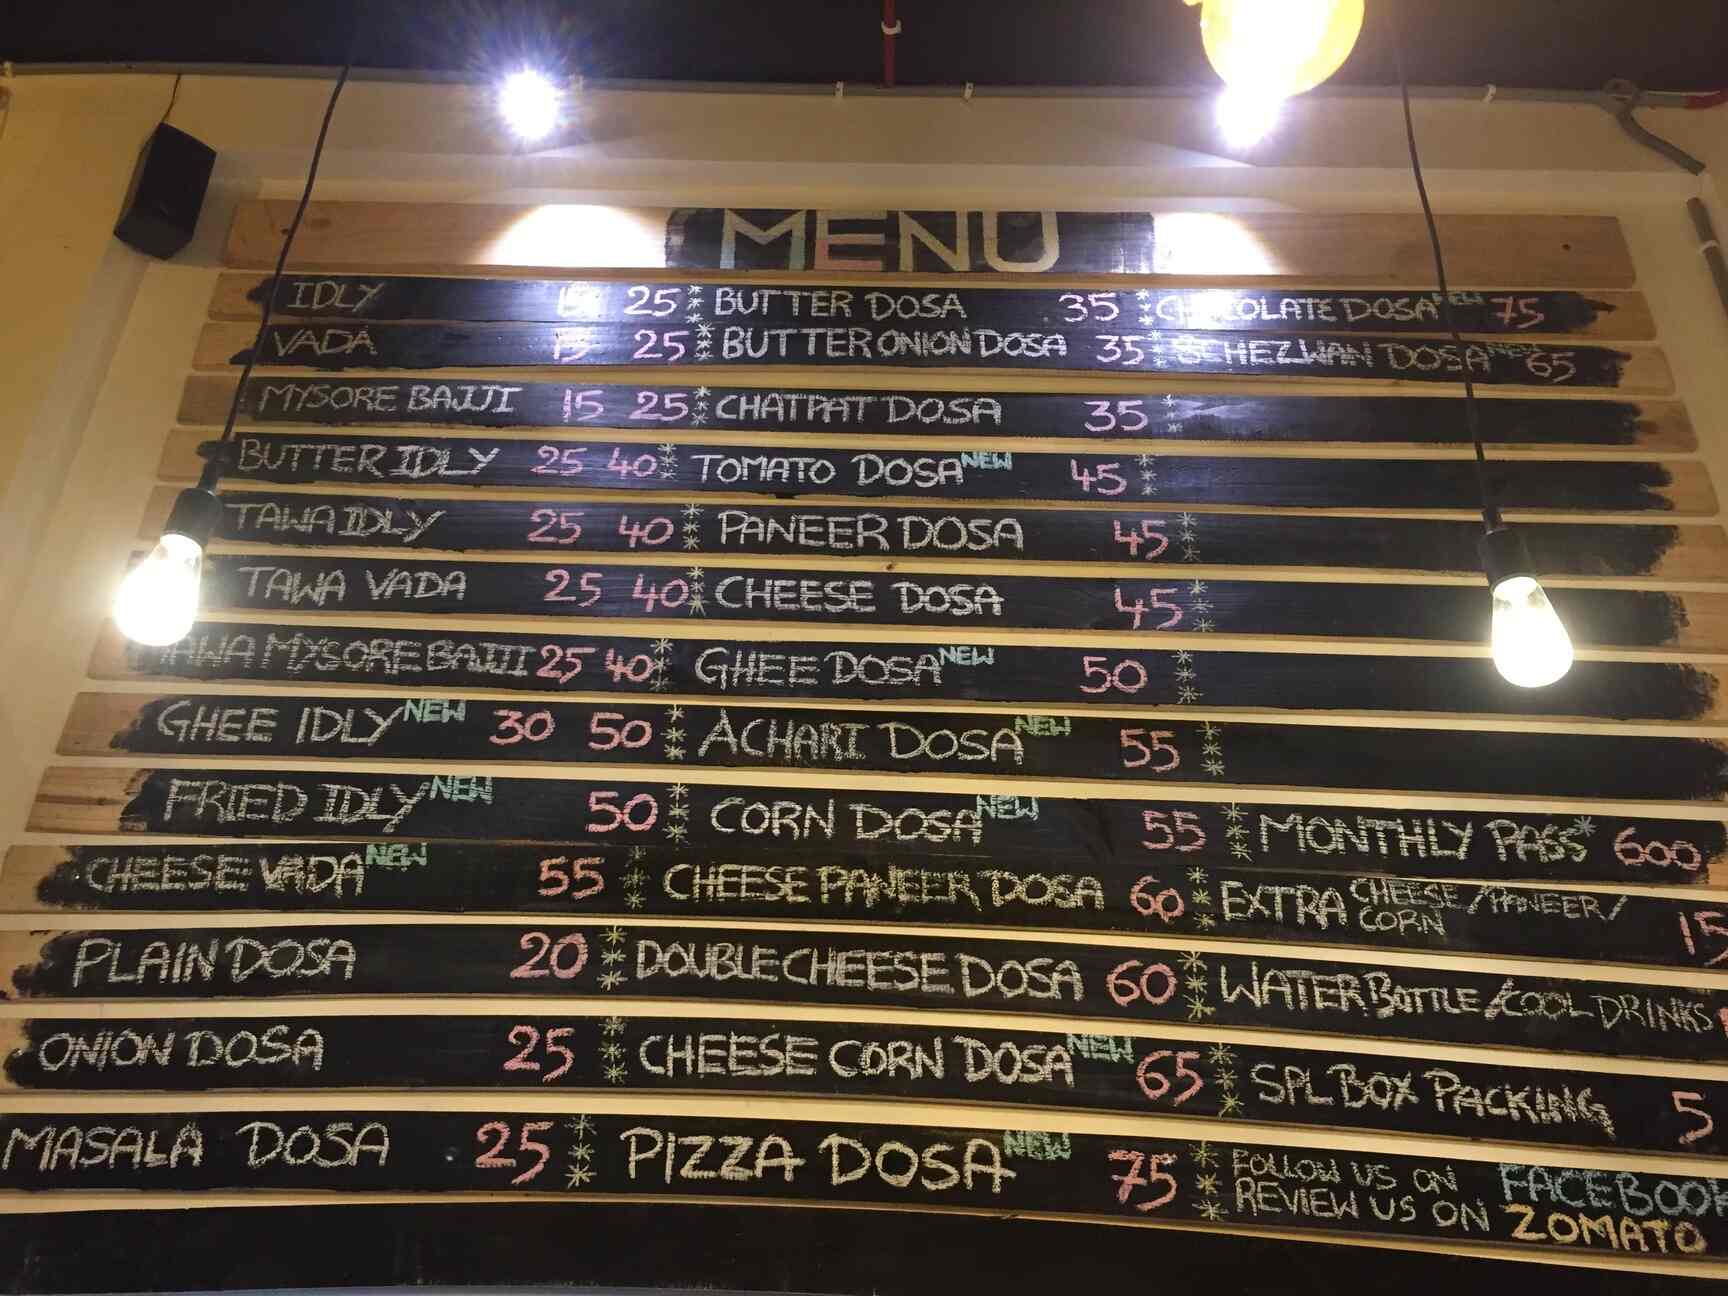 MENU
IDLY 15 25 BUTTER DOSA 35 CHOCOLATE DOSA NEW 75
VADA 15 25 BUTTER ONION DOSA 35 SCHEZWAN DOSA NEW 65
MYSORE BAJJI 15 25 CHATPAT DOSA 35
BUTTER IDLY 25 40 TOMATO DOSA NEW 45
TAWA IDLY 25 40 PANEER DOSA 45
TAWA VADA 25 40 CHEESE DOSA 45
TAWA MYSORE BAJJI 25 40 GHEE DOSA NEW 50
GHEE IDLY NEW 30 50 ACHARI DOSA NEW 55
FRIED IDLY NEW 50 CORN DOSA NEW 55 MONTHLY PASS* 600
CHEESE VADA NEW 55 CHEESE PANEER DOSA 60 EXTRA CHEESE/PANEER/CORN 15
PLAIN DOSA 20 DOUBLE CHEESE DOSA 60 WATER BOTTLE/COOL DRINKS
ONION DOSA 25 CHEESE CORN DOSA NEW 65 SPL BOX PACKING 5
MASALA DOSA 25 PIZZA DOSA NEW 75 FOLLOW US ON FACEBOOK
REVIEW US ON ZOMATO